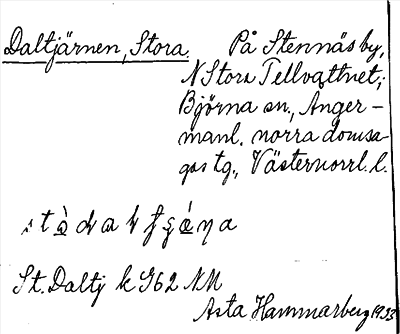 Daltjärnen, Stora. På Stennäs by,
N Stora Tellvattnet,
Björna sn., Ånger-
manl. norra domsa-
gas tg., Västernorrl. l.
St. Daltj k G62 NM
Asta Hammarberg 1933